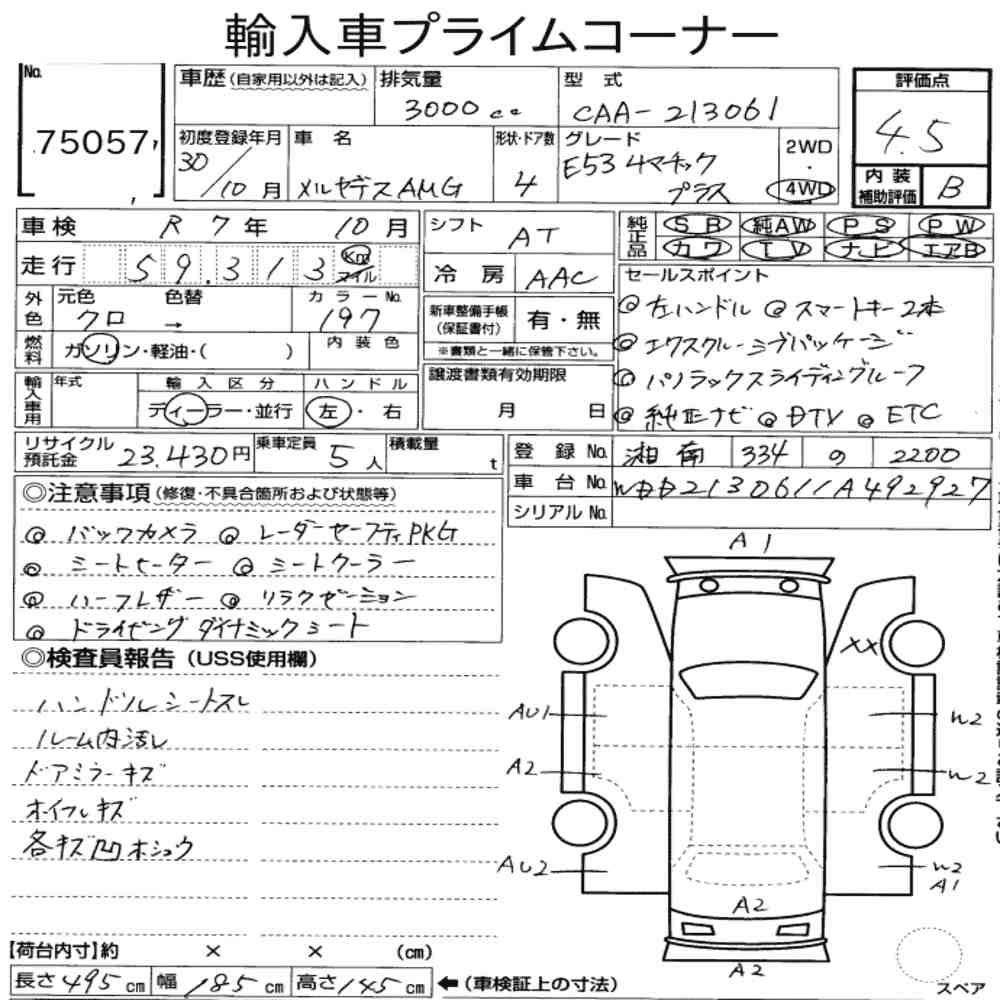 輸入車プライムコーナー
No. 75057
車歴(自家用以外は記入) 排気量 3000cc 型式 CAA-213061
評価点 4.5
初度登録年月 30/10月 車名 メルセデスAMG 形状・ドア数 4 グレード E53 4マチック プラス 2WD・4WD
内装補助評価 B
車検 R7年10月
走行 59,313 Km マイル
シフト AT
冷房 AAC
純正品 SR 純AW PS PW
カワ TV ナビ エアB
外色 元色 クロ 色替 → カラーNo. 197
燃料 ガソリン・軽油・( ) 内装色
新車整備手帳(保証書付) 有・無
※書類と一緒に保管下さい。
セールスポイント
◎左ハンドル ◎スマートキー2本
◎エクスクルーシブパッケージ
◎パノラックスライディングルーフ
◎純正ナビ ◎DTV ◎ETC
輸入車用 年式 輸入区分 ディーラー・並行 ハンドル 左・右
譲渡書類有効期限 月 日
リサイクル預託金 23,430円 乗車定員 5人 積載量 t
登録No. 湘南 334 の 2200
車台No. WDD2130611A492927
シリアルNo.
◎注意事項(修復・不具合箇所および状態等)
◎バックカメラ ◎レーダーセーフティPKG
◎シートヒーター ◎シートクーラー
◎ハーフレザー ◎リラクゼーション
◎ドライビングダイナミックシート
◎検査員報告(USS使用欄)
ハンドルシートスレ
ルーム内汚レ
ドアミラーキズ
ホイフルキズ
各キズ凹ホシュウ
A1
XX
AU1
W2
A2
W2
AU2
W2
A1
A2
A2
スペア
【荷台内寸】約 × × (cm)
長さ495cm 幅185cm 高さ145cm ←(車検証上の寸法)